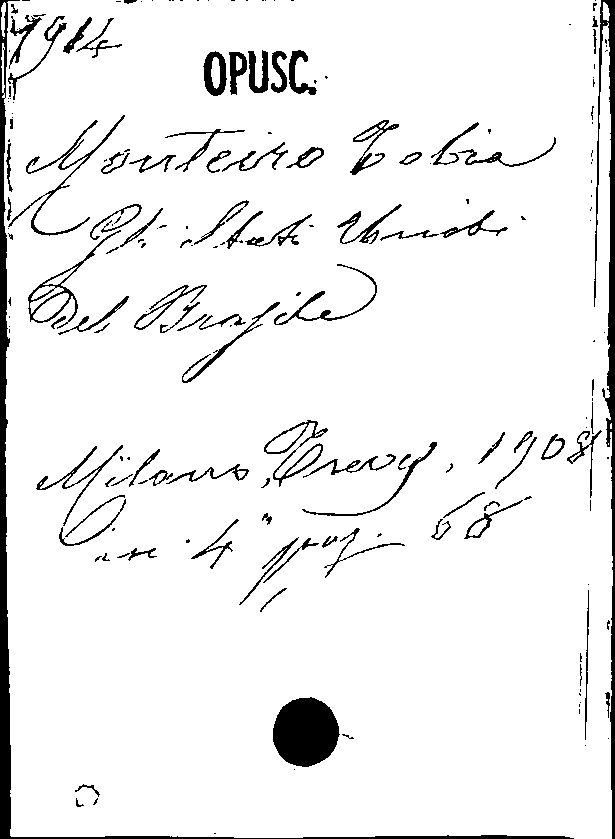 1914
OPUSC.
Monteiro Tobia
Gli Stati Uniti
Del Brasile
Milano, Treves, 1908
in 4° pag. 68